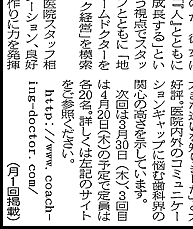 「人」とともに
成長すること」とい
う視点でスタッ
フとともに「地
ームドクターを
ク経営」を模索
医院スタッフ相
ーション、良好
作りに力を発揮
好評。医院内外のコミュニケー
ションギャップに悩む歯科界の
関心の高さを示しています。
次回は3月30日(木)、3回目
は4月20日(木)の予定で定員は
各20名。詳しくは左記のサイト
をご参照ください。
http://www.coach-
ing-doctor.com/
(月1回掲載)